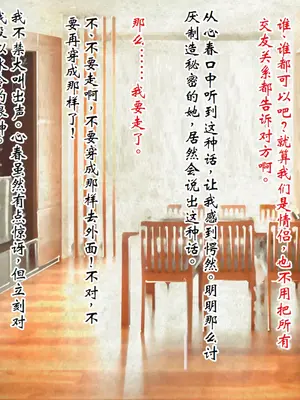 谁、谁都可以吧？就算我们是情侣，也不用把所有
交友关系都告诉对方啊。
从心春口中听到这种话，让我感到愕然。明明那么讨
厌制造秘密的她，居然会说出这种话。
那么……我要走了。
不、不要走啊，不要穿成那样去外面！不对，不
要再穿成那样了！
我不禁大叫出声。心春虽然有点惊讶，但立刻对